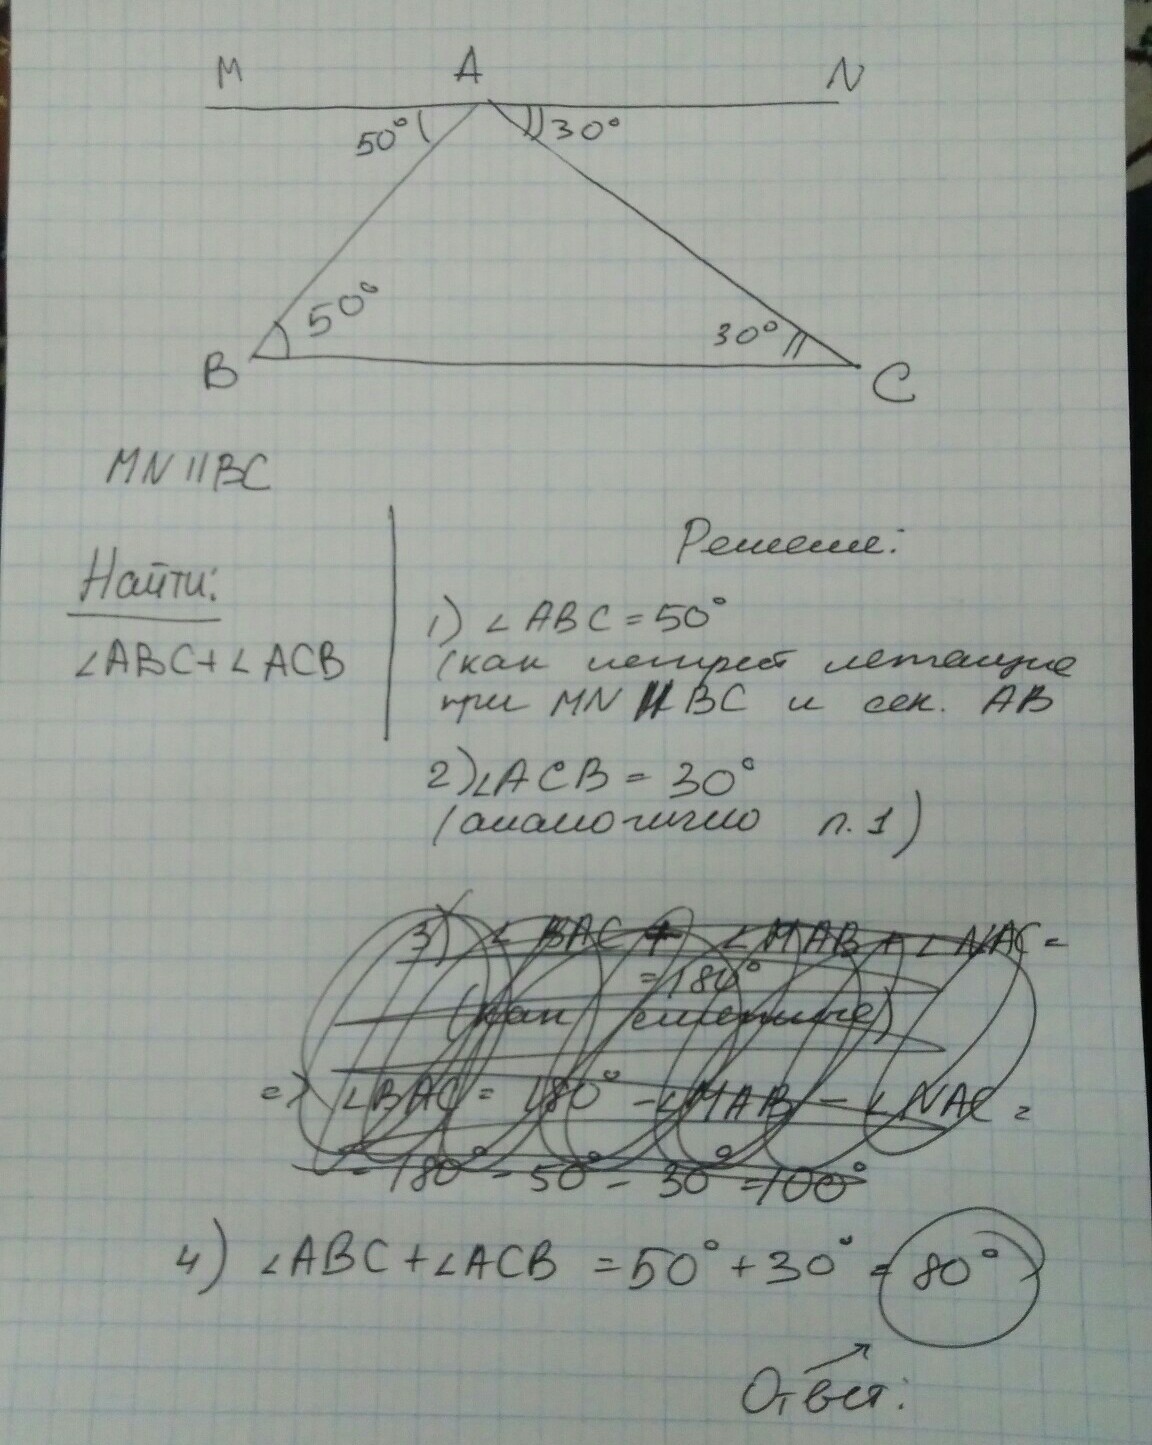 M A N
50° 30°
50° 30°
B C
MN || BC
Найти:
∠ABC+∠ACB
Решение:
1) ∠ABC=50°
(как накрест лежащие
при MN || BC и сек. AB
2) ∠ACB = 30°
(аналогично п.1)
3) ∠BAC + ∠MAB + ∠NAC =
=180°
(как смежные)
=> ∠BAC = 180° - ∠MAB - ∠NAC =
= 180° - 50° - 30° = 100°
4) ∠ABC + ∠ACB = 50° + 30° = 80°
Ответ: